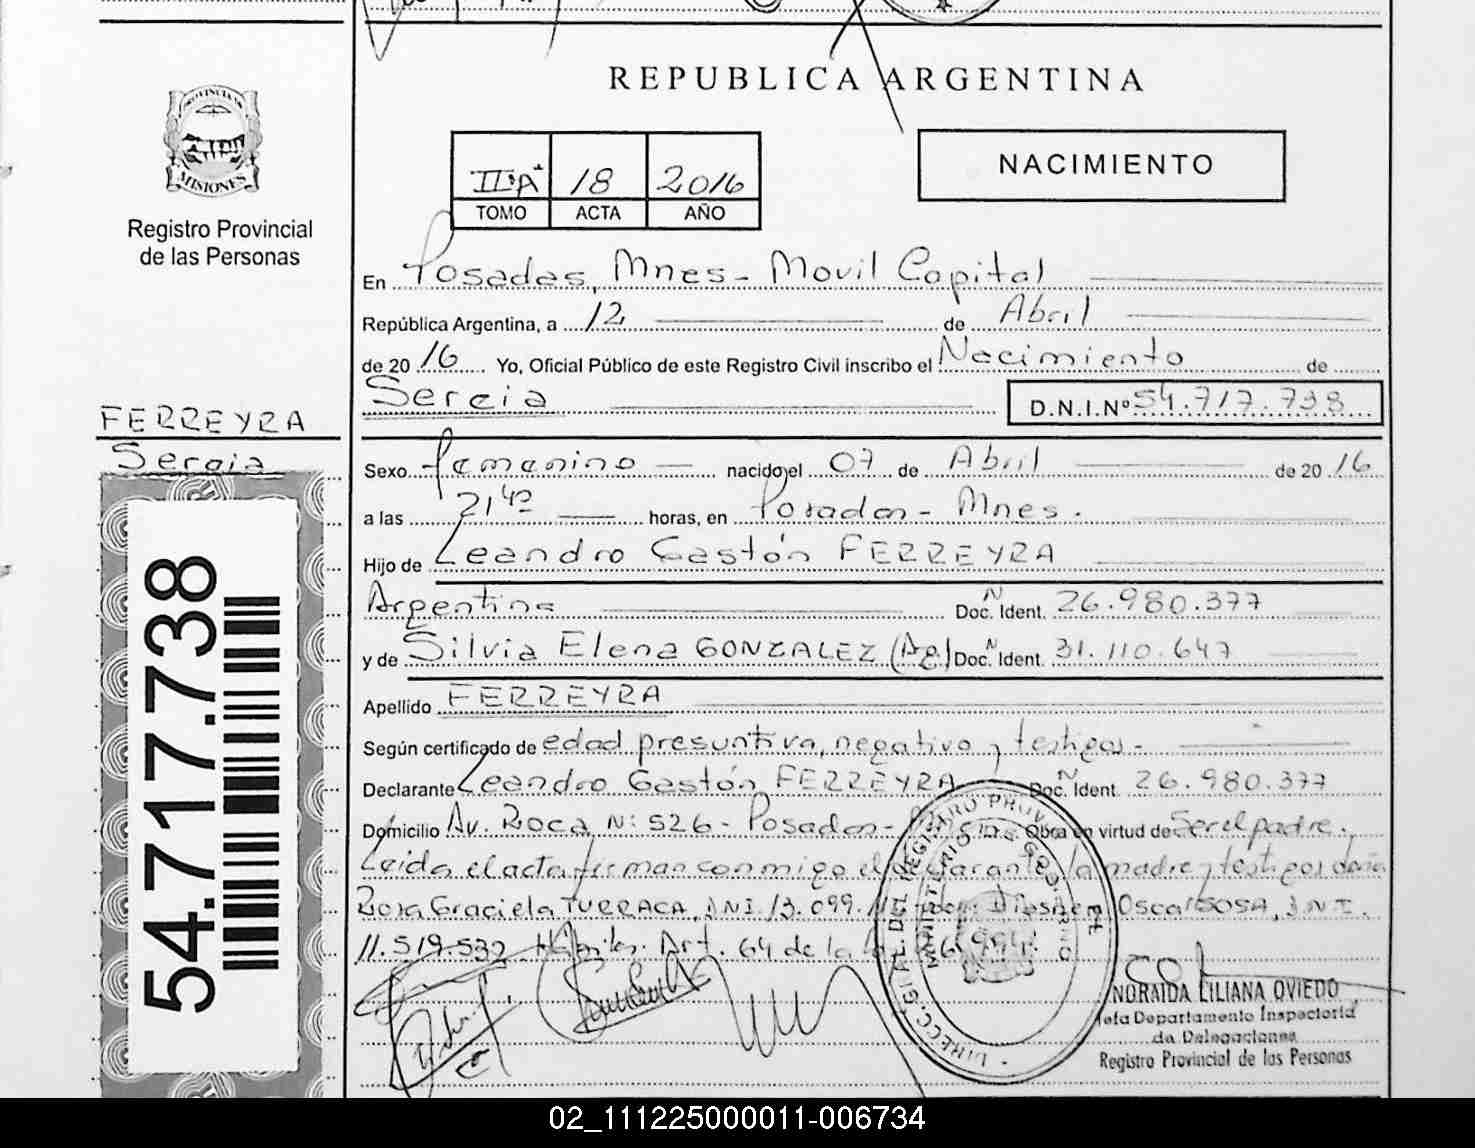 REPUBLICA ARGENTINA
PROVINCIA DE
MISIONES
Registro Provincial
de las Personas
18 2016
TOMO ACTA AÑO
NACIMIENTO
En Posadas, Mnes- Movil Capital
República Argentina, a 12 de Abril
de 20 16 Yo, Oficial Público de este Registro Civil inscribo el Nacimiento de
D.N.I.Nº 54.717.738
FERREYRA
Sexo femenino nacido el 07 de Abril de 20 16
a las 21 horas, en Posadas - Mnes.
Hijo de Leandro Gastón FERREYRA
Argentina Doc. Ident. 26.980.377
y de Silvia Elena GONZALEZ (Arg) Doc. Ident. 31.110.647
Apellido FERREYRA
Según certificado de edad presuntiva, negativo y testigos-
Declarante Leandro Gastón FERREYRA Doc. Ident. 26.980.377
Domicilio Av. Roca Nº 526- Posadas- Obra en virtud de Ser el padre.
Leida el acta firman conmigo el declarante la madre y testigos doña
Rosa Graciela TURRACA, DNI 13.099. Oscar SOSA, DNI.
11.519.532 Art. 64 de la
54.717.738
NORAIDA LILIANA OVIEDO
Jefa Departamento Inspectoria
de Delegaciones
Registro Provincial de las Personas
02_111225000011-006734